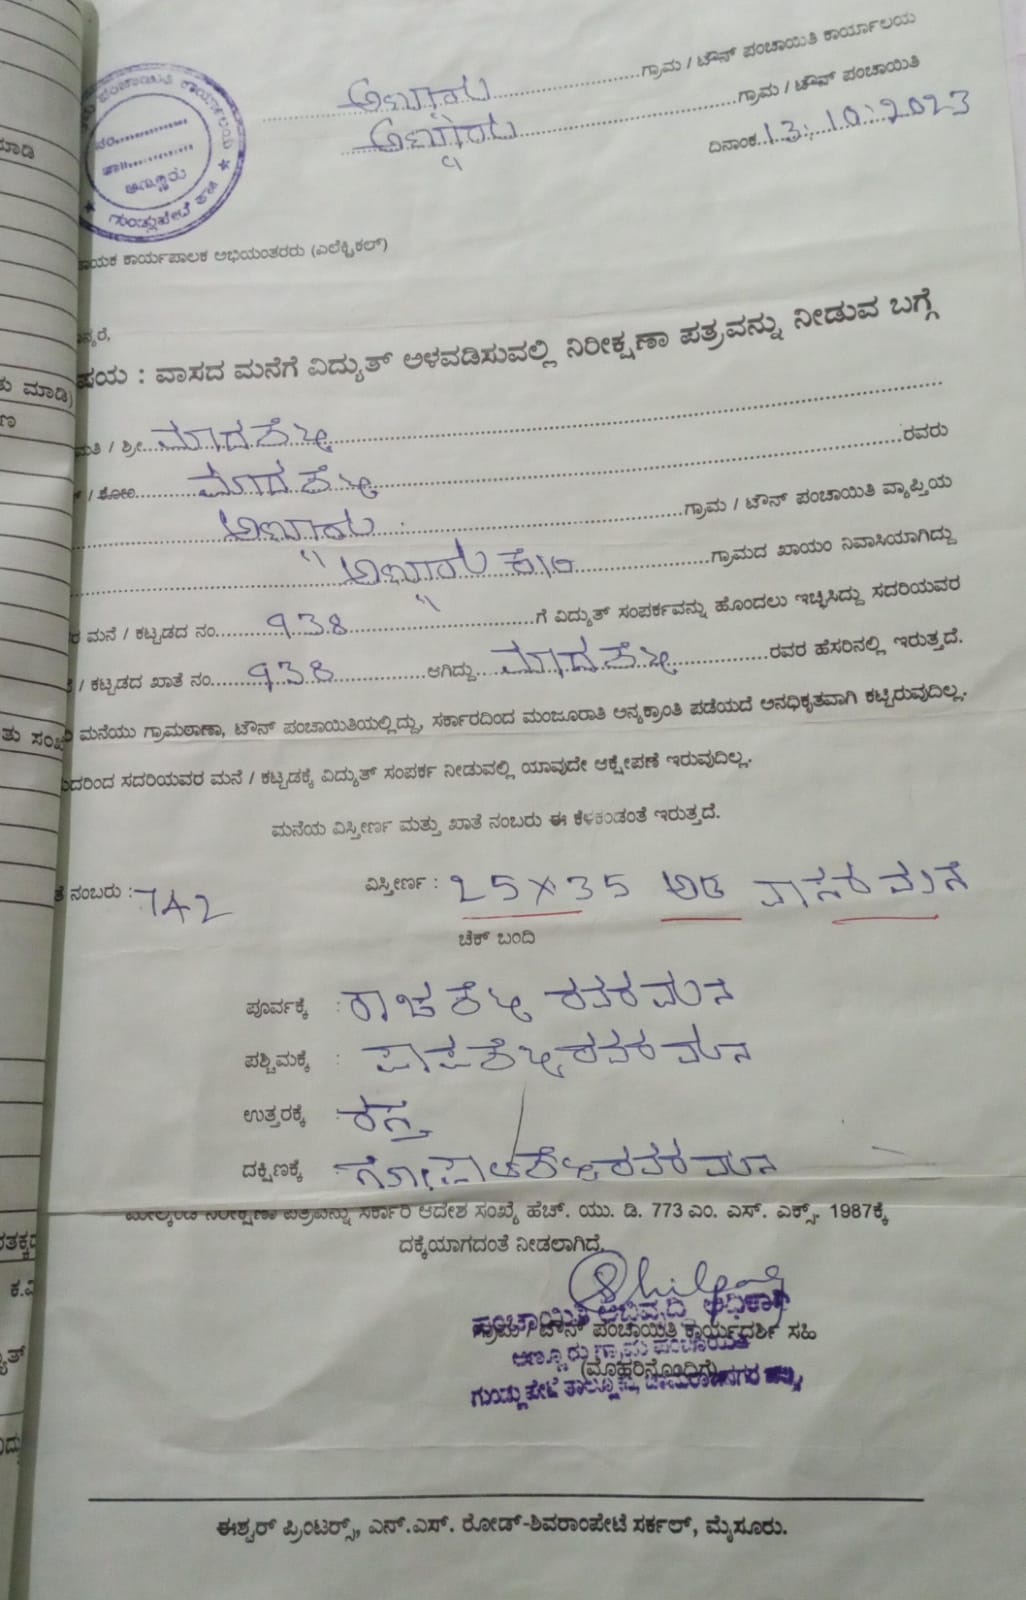 ಅಣ್ಣೂರು ಗ್ರಾಮ / ಟೌನ್ ಪಂಚಾಯಿತಿ ಕಾರ್ಯಾಲಯ
ಅಣ್ಣೂರು ಗ್ರಾಮ / ಟೌನ್ ಪಂಚಾಯಿತಿ
ದಿನಾಂಕ 13:10:2023
ಪಂಚಾಯಿತಿ ಕಾರ್ಯಾಲಯ
ಅಣ್ಣೂರು
ಗುಂಡ್ಲುಪೇಟೆ
ಕಾರ್ಯಪಾಲಕ ಅಭಿಯಂತರರು (ಎಲೆಕ್ಟ್ರಿಕಲ್)
: ವಾಸದ ಮನೆಗೆ ವಿದ್ಯುತ್ ಅಳವಡಿಸುವಲ್ಲಿ ನಿರೀಕ್ಷಣಾ ಪತ್ರವನ್ನು ನೀಡುವ ಬಗ್ಗೆ
/ ಶ್ರೀ ಮಾದಶೆಟ್ಟಿ
/ ಕೋಂ ಮಾದಶೆಟ್ಟಿ ರವರು
ಅಣ್ಣೂರು ಗ್ರಾಮ / ಟೌನ್ ಪಂಚಾಯಿತಿ ವ್ಯಾಪ್ತಿಯ
ಅಣ್ಣೂರು ಕೇರಿ ಗ್ರಾಮದ ಖಾಯಂ ನಿವಾಸಿಯಾಗಿದ್ದು
ಮನೆ / ಕಟ್ಟಡದ ನಂ. 938 ಗೆ ವಿದ್ಯುತ್ ಸಂಪರ್ಕವನ್ನು ಹೊಂದಲು ಇಚ್ಛಿಸಿದ್ದು ಸದರಿಯವರ
/ ಕಟ್ಟಡದ ಖಾತೆ ನಂ. 938 ಆಗಿದ್ದು ಮಾದಶೆಟ್ಟಿ ರವರ ಹೆಸರಿನಲ್ಲಿ ಇರುತ್ತದೆ.
ಮನೆಯು ಗ್ರಾಮಠಾಣಾ, ಟೌನ್ ಪಂಚಾಯಿತಿಯಲ್ಲಿದ್ದು, ಸರ್ಕಾರದಿಂದ ಮಂಜೂರಾತಿ ಅನ್ಯಕ್ರಾಂತಿ ಪಡೆಯದೆ ಅನಧಿಕೃತವಾಗಿ ಕಟ್ಟಿರುವುದಿಲ್ಲ.
ಸದರಿಯವರ ಮನೆ / ಕಟ್ಟಡಕ್ಕೆ ವಿದ್ಯುತ್ ಸಂಪರ್ಕ ನೀಡುವಲ್ಲಿ ಯಾವುದೇ ಆಕ್ಷೇಪಣೆ ಇರುವುದಿಲ್ಲ.
ಮನೆಯ ವಿಸ್ತೀರ್ಣ ಮತ್ತು ಖಾತೆ ನಂಬರು ಈ ಕೆಳಕಂಡಂತೆ ಇರುತ್ತದೆ.
ನಂಬರು : 742 ವಿಸ್ತೀರ್ಣ : 25 × 35 ಅಡಿ ವಾಸದ ಮನೆ
ಚೆಕ್ ಬಂದಿ
ಪೂರ್ವಕ್ಕೆ : ರಾಚಶೆಟ್ಟಿ ರವರ ಮನೆ
ಪಶ್ಚಿಮಕ್ಕೆ : ಪಾಪಶೆಟ್ಟಿ ರವರ ಮನೆ
ಉತ್ತರಕ್ಕೆ : ರಸ್ತೆ
ದಕ್ಷಿಣಕ್ಕೆ : ಗೋಪಾಲಶೆಟ್ಟಿ ರವರ ಮನೆ
ಮೇಲ್ಕಂಡ ನಿರೀಕ್ಷಣಾ ಪತ್ರವನ್ನು ಸರ್ಕಾರಿ ಆದೇಶ ಸಂಖ್ಯೆ ಹೆಚ್. ಯು. ಡಿ. 773 ಎಂ. ಎಸ್. ಎಕ್ಸ್. 1987ಕ್ಕೆ
ದಕ್ಕೆಯಾಗದಂತೆ ನೀಡಲಾಗಿದೆ.
ಪಂಚಾಯಿತಿ ಅಭಿವೃದ್ಧಿ ಅಧಿಕಾರಿ
ಗ್ರಾಮ / ಟೌನ್ ಪಂಚಾಯಿತಿ ಕಾರ್ಯದರ್ಶಿ ಸಹಿ
ಅಣ್ಣೂರು ಗ್ರಾಮ ಪಂಚಾಯಿತಿ
(ಮೊಹರಿನೊಂದಿಗೆ)
ಗುಂಡ್ಲುಪೇಟೆ ತಾಲ್ಲೂಕು, ಚಾಮರಾಜನಗರ ಜಿಲ್ಲೆ
ಈಶ್ವರ್ ಪ್ರಿಂಟರ್ಸ್, ಎನ್.ಎಸ್. ರೋಡ್-ಶಿವರಾಂಪೇಟೆ ಸರ್ಕಲ್, ಮೈಸೂರು.